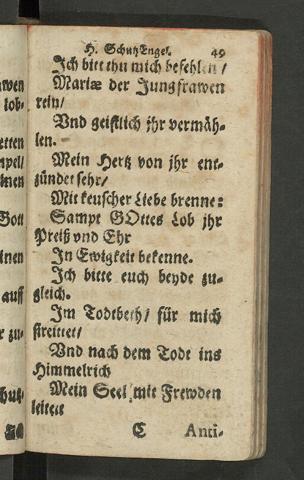 H. SchutzEngel. 49
Ich bitt thu mich befehlen/
Mariæ der Jungfrawen
rein/
Vnd geistlich jhr vermäh-
len.
Mein Hertz von jhr ent-
zündet sehr/
Mit keuscher Liebe brenne:
Sampt GOttes Lob jhr
Preiß vnd Ehr
In Ewigkeit bekenne.
Ich bitte euch beyde zu-
gleich.
Im Todtbeth/ für mich
streittet/
Vnd nach dem Todt ins
Himmelrich
Mein Seel mit Frewden
leitett
C Anti-